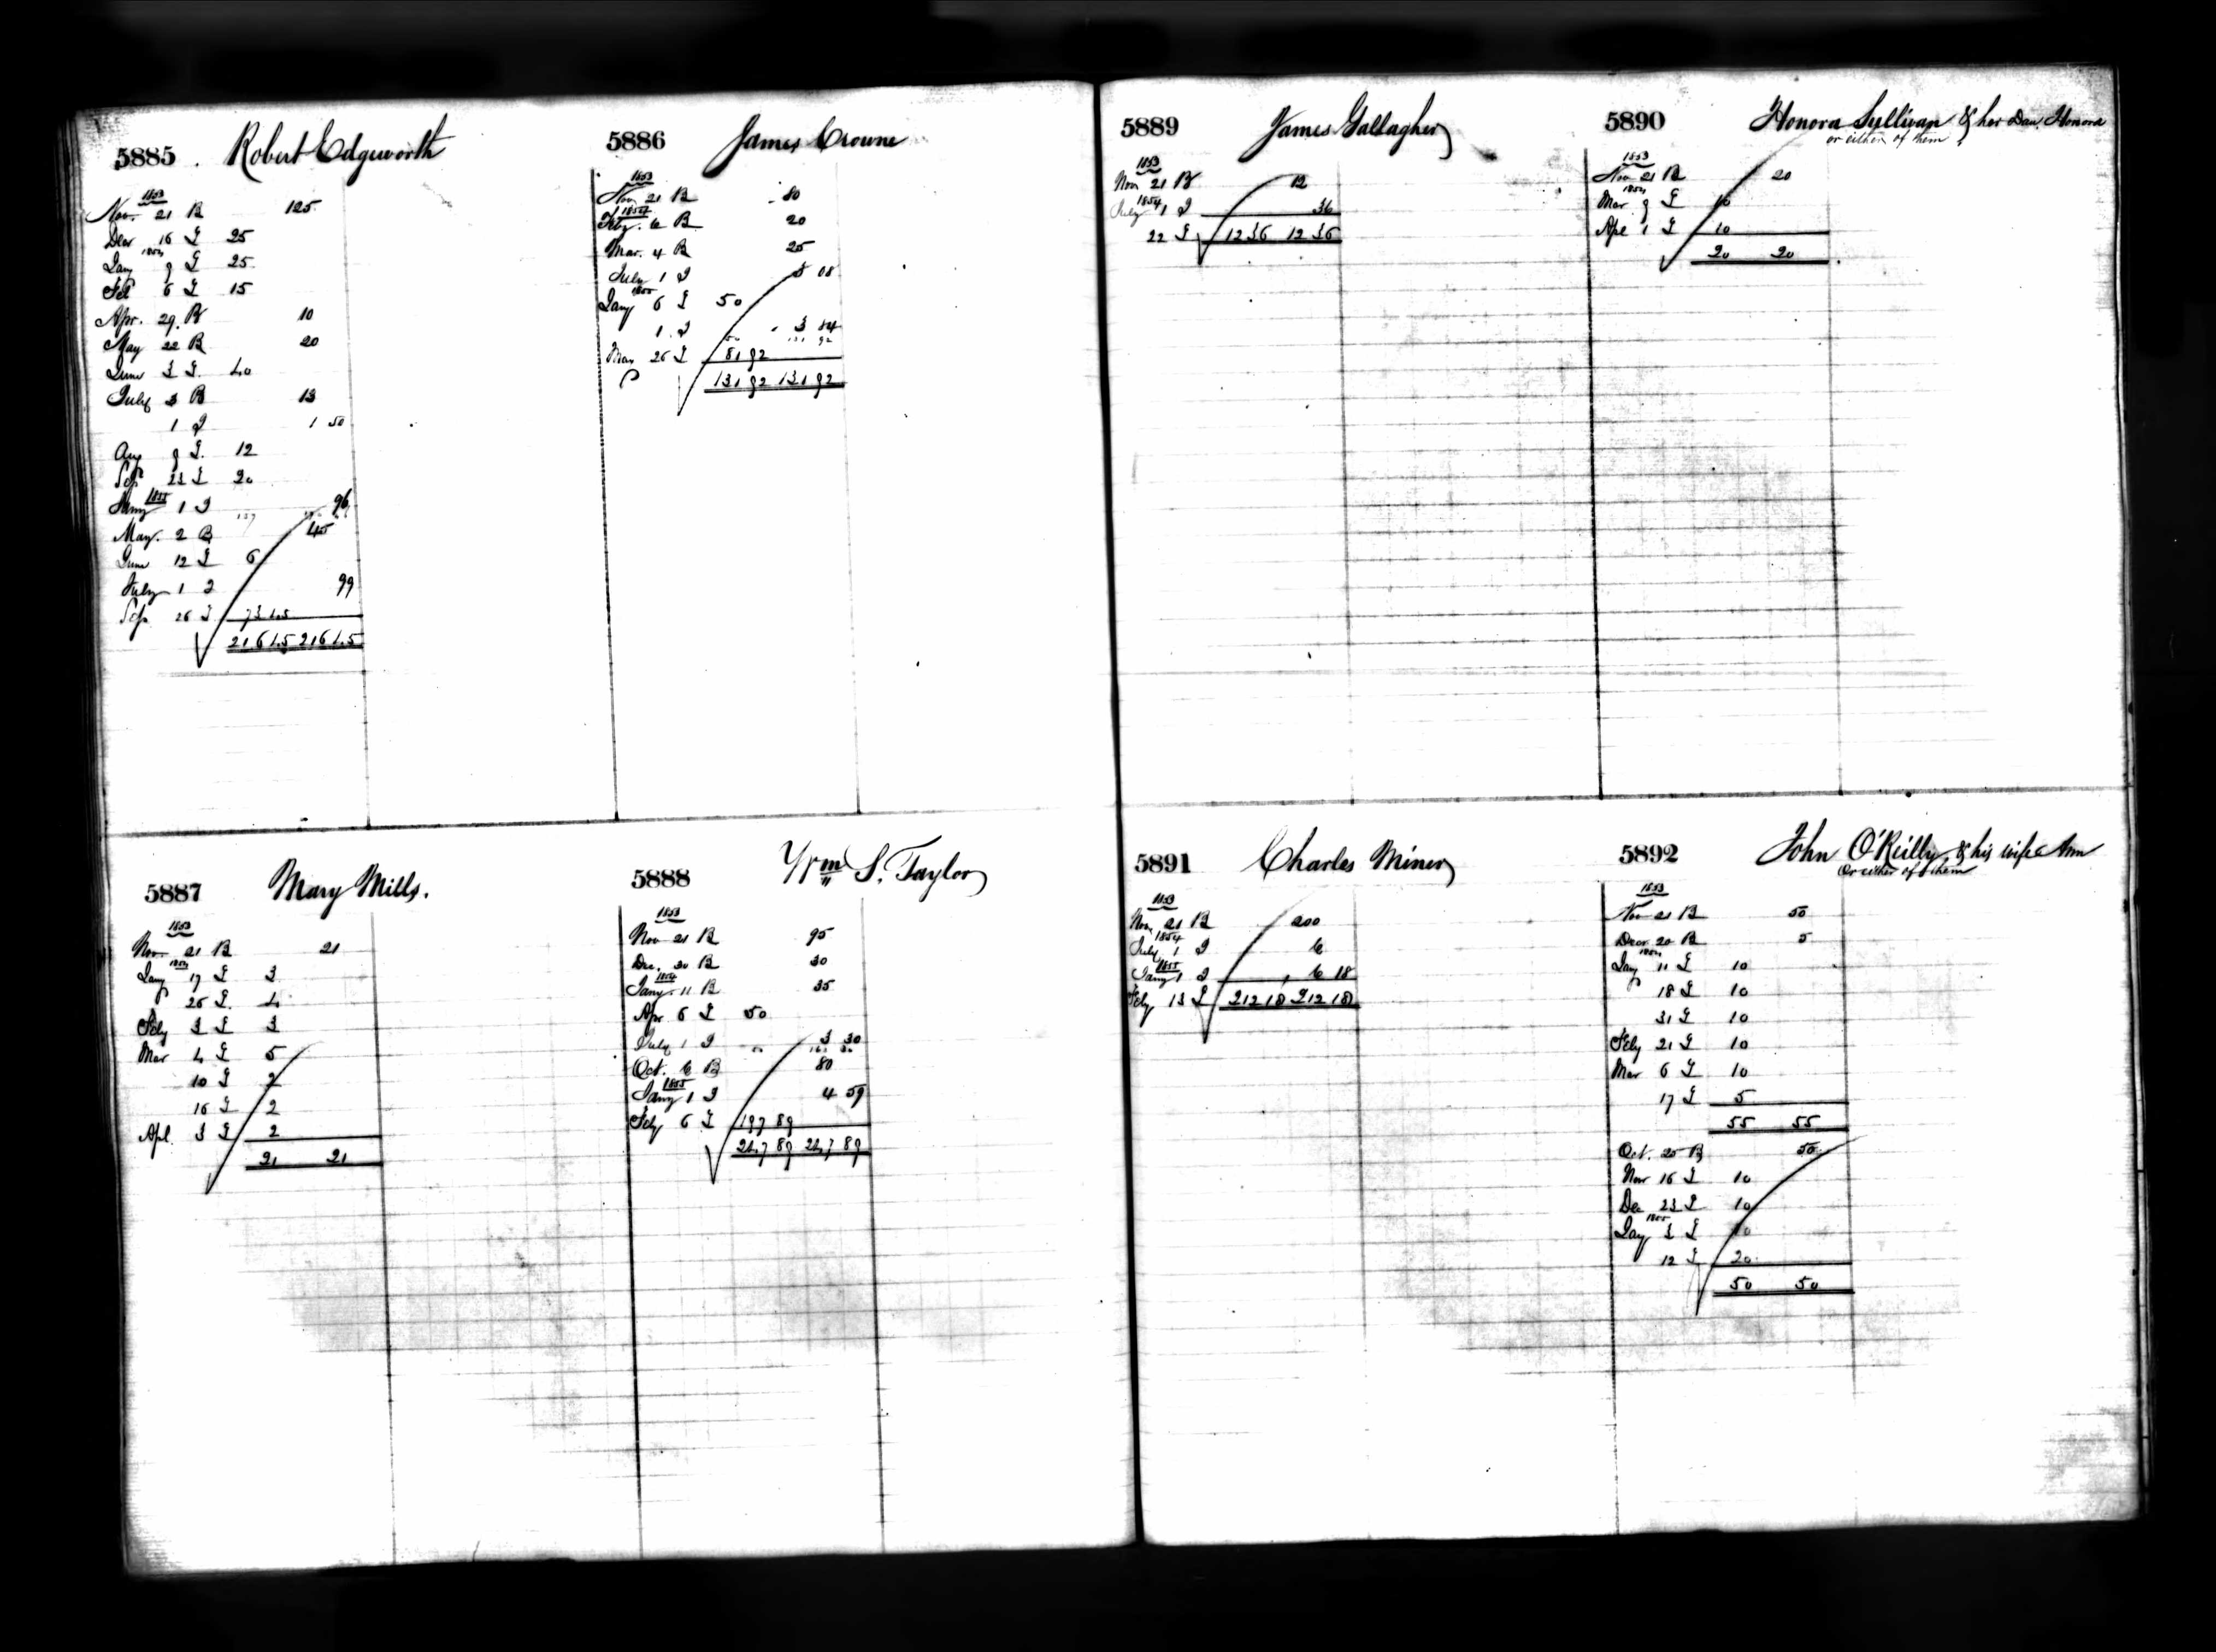 5885 Robert Edgeworth
1853
Nov. 21 B 125
Decr 16 L 25
1854
Jany 9 L 25
Feb 6 L 15
Apr. 29. B 10
May 22 B 20
June 3 L 40
July 3 B 13
1 I 1 50
Aug 9 L 12
Sep 23 L 20
Jany 1855 1 I 96
May. 2 B 45
June 12 L 6
July 1 I 99
Sep 26 L 73 45
216 45 216 45
5886 James Crowne
1853
Nov 21 B 80
1854
Feby. 6 B 20
Mar. 4 B 25
July 1 I 3 08
1855
Jany 6 L 50
1 I 3 84
50 131 92
Mar 26 L 81 92
131 92 131 92
5887 Mary Mills.
1853
Nov 21 B 21
1854
Jany 17 L 3
25 L 4
Feby 3 L 3
Mar 4 L 5
10 L 2
16 L 2
Apl. 3 L 2
21 21
5888 Wm S. Taylor
1853
Nov 21 B 95
Dec. 20 B 30
1854
Jany 11 B 35
Apr 6 L 50
July 1 I 3 30
Oct. 6 B 80
1855
Jany 1 I 4 59
Feby 6 L 197 89
247 89 247 89
5889 James Gallagher
1853
Nov 21 B 12
1854
July 1 I 36
22 L 12 36 12 36
5890 Honora Sullivan & her Dau. Honora
or either of them
1853
Nov 21 B 20
1854
Mar 9 L 10
Apl 1 L 10
20 20
5891 Charles Miner
1853
Nov 21 B 200
1854
July 1 I 6
1855
Jany 1 I 6 18
Feby 13 L 212 18 212 18
5892 John O'Reilly & his wife Ann
Or either of them
1853
Nov 21 B 50
Decr 20 B 5
1854
Jany 11 L 10
18 L 10
31 L 10
Feby 21 L 10
Mar 6 L 10
17 L 5
55 55
Oct. 25 B 50
Nov 16 L 10
Dec 23 L 10
1855
Jany 3 L 10
12 L 20
50 50